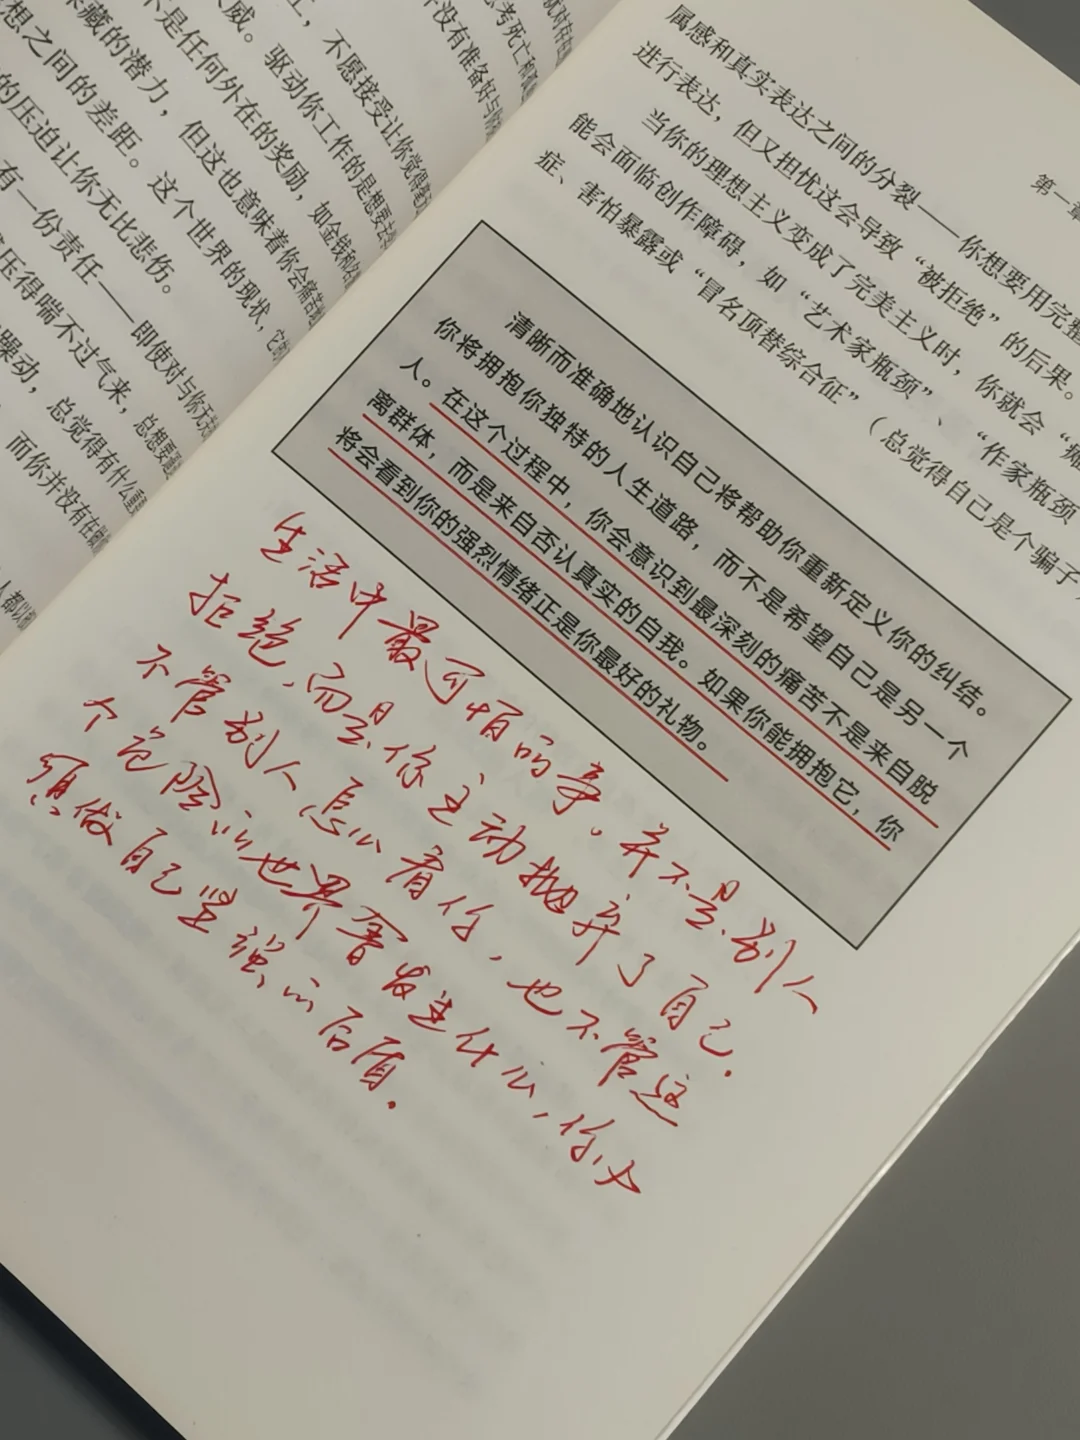 想之间的差距。这个世界的现状，
的压迫让你无比悲伤。
有一份责任——即使对与你无
压得喘不过气来，总想要
躁动，总觉得有什么
而你并没有在
藏的潜力，但这也意味着你会痛苦
不是任何外在的奖励，如金钱和名
威。驱动你工作的是想要去
不愿接受让你觉得
并没有准备好与
第一章
属感和真实表达之间的分裂——你想要用完整
进行表达，但又担忧这会导致“被拒绝”的后果。
当你的理想主义变成了完美主义时，你就会“瘫
能会面临创作障碍，如“艺术家瓶颈”、“作家瓶颈
症、害怕暴露或“冒名顶替综合征”（总觉得自己是个骗子
清晰而准确地认识自己将帮助你重新定义你的纠结。
你将拥抱你独特的人生道路，而不是希望自己是另一个
人。在这个过程中，你会意识到最深刻的痛苦不是来自脱
离群体，而是来自否认真实的自我。如果你能拥抱它，你
将会看到你的强烈情绪正是你最好的礼物。
生活中最可怕的事。并不是别人
拒绝，而是你主动抛弃了自己.
不管别人怎么看你，也不管这
个危险的世界会发生什么，你必
须做自己坚强的后盾.